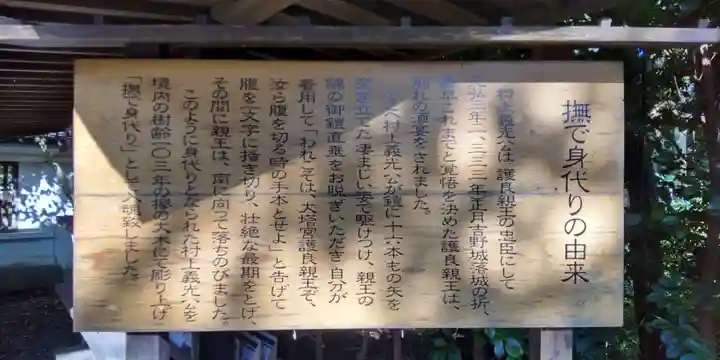 撫で身代りの由来
村上義光公は護良親王の忠臣にして
元弘三年一、三三三年正月吉野城落城の折、
最早これまでと覚悟を決めた護良親王は、
別れの酒宴をされました。
村上義光公が鎧に十六本もの矢を
突き立てた凄まじい姿で駆けつけ、親王の
錦の御鎧直垂をお脱ぎいただき自分が
着用して「われこそは、大塔宮護良親王ぞ、
汝ら腹を切る時の手本とせよ」と告げて
腹を一文字に掻き切り、壮絶な最期をとげ、
その間に親王は、南に向って落ちのびました。
このように身代りとなられた村上義光公を
境内の樹齢一〇三年の欅の大木にて彫り上げ
「撫で身代り」として入魂致しました。